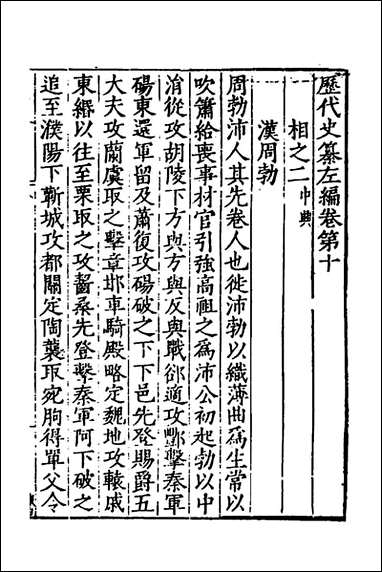 歷代史纂左編卷第十
相之二 中興
漢周勃
周勃沛人其先卷人也徙沛勃以織薄曲爲生常以
吹簫給喪事材官引強高祖之爲沛公初起勃以中
涓從攻胡陵下方與方與反與戰郤適攻酆擊秦軍
碭東還軍留及蕭復攻碭破之下下邑先登賜爵五
大夫攻蘭虞取之擊章邯車騎殿略定魏地攻轅戚
東緡以往至栗取之攻齧桑先登擊秦軍阿下破之
追至濮陽下蘄城攻都關定陶襲取宛朐得單父令